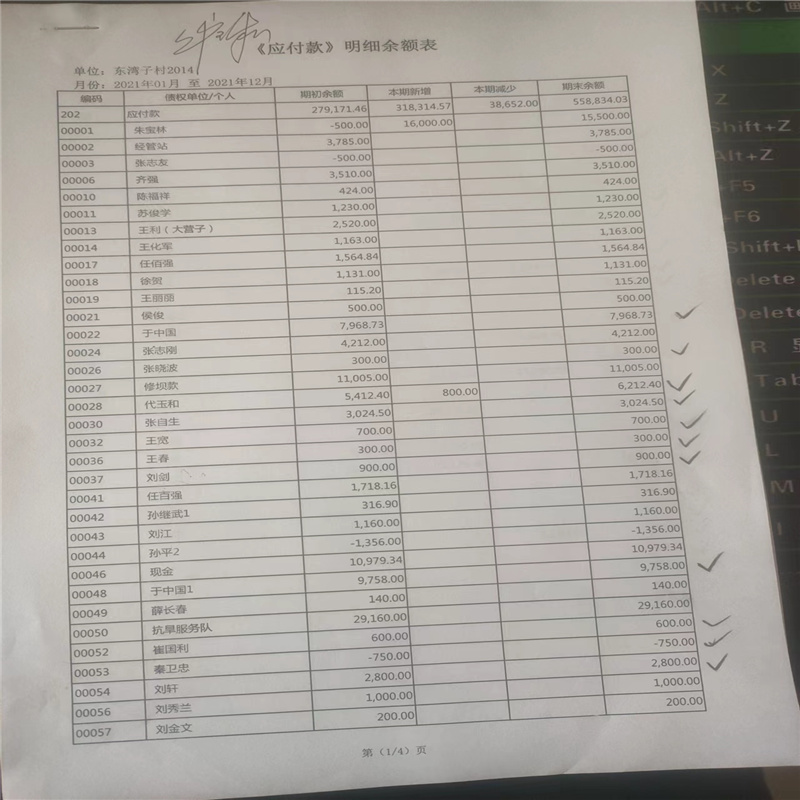 《应付款》明细余额表
单位：东湾子村2014
月份：2021年01月 至 2021年12月
编码 债权单位/个人 期初余额 本期新增 本期减少 期末余额
202 应付款 279,171.46 318,314.57 38,652.00 558,834.03
00001 朱宝林 -500.00 16,000.00 15,500.00
00002 经管站 3,785.00 3,785.00
00003 张志友 -500.00 -500.00
00006 齐强 3,510.00 3,510.00
00010 陈福祥 424.00 424.00
00011 苏俊学 1,230.00 1,230.00
00013 王利（大营子） 2,520.00 2,520.00
00014 王化军 1,163.00 1,163.00
00017 任佰强 1,564.84 1,564.84
00018 徐贺 1,131.00 1,131.00
00019 王丽丽 115.20 115.20
00021 侯俊 500.00 500.00
00022 于中国 7,968.73 7,968.73
00024 张志刚 4,212.00 4,212.00
00026 张晓波 300.00 300.00
00027 修坝款 11,005.00 11,005.00
00028 代玉和 5,412.40 800.00 6,212.40
00030 张自生 3,024.50 3,024.50
00032 王宽 700.00 700.00
00036 王春 300.00 300.00
00037 刘剑 900.00 900.00
00041 任百强 1,718.16 1,718.16
00042 孙继武1 316.90 316.90
00043 刘江 1,160.00 1,160.00
00044 孙平2 -1,356.00 -1,356.00
00046 现金 10,979.34 10,979.34
00048 于中国1 9,758.00 9,758.00
00049 薛长春 140.00 140.00
00050 抗旱服务队 29,160.00 29,160.00
00052 崔国利 600.00 600.00
00053 秦卫忠 -750.00 -750.00
00054 刘轩 2,800.00 2,800.00
00056 刘秀兰 1,000.00 1,000.00
00057 刘金文 200.00 200.00
第（1/4）页
Alt+C
X
Z
Shift+Z
Alt+Z
+F5
+F6
Shift+
elete
Delete
R
Tab
U
L
M